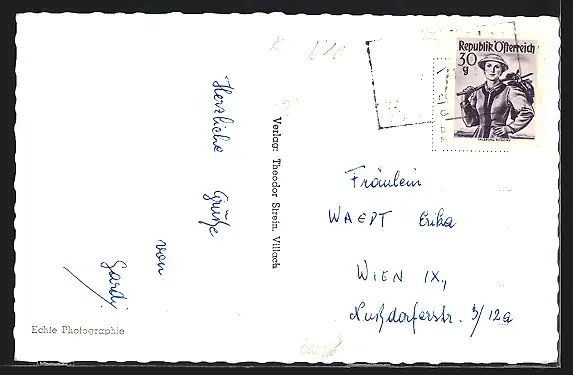 Herzliche Grüße
von
Gardy.
Verlag: Theodor Strein, Villach
Echte Photographie
Republik Österreich
30
g
Fräulein
WAEDT Erika
WIEN IX.,
Nußdorferstr. 3/12a